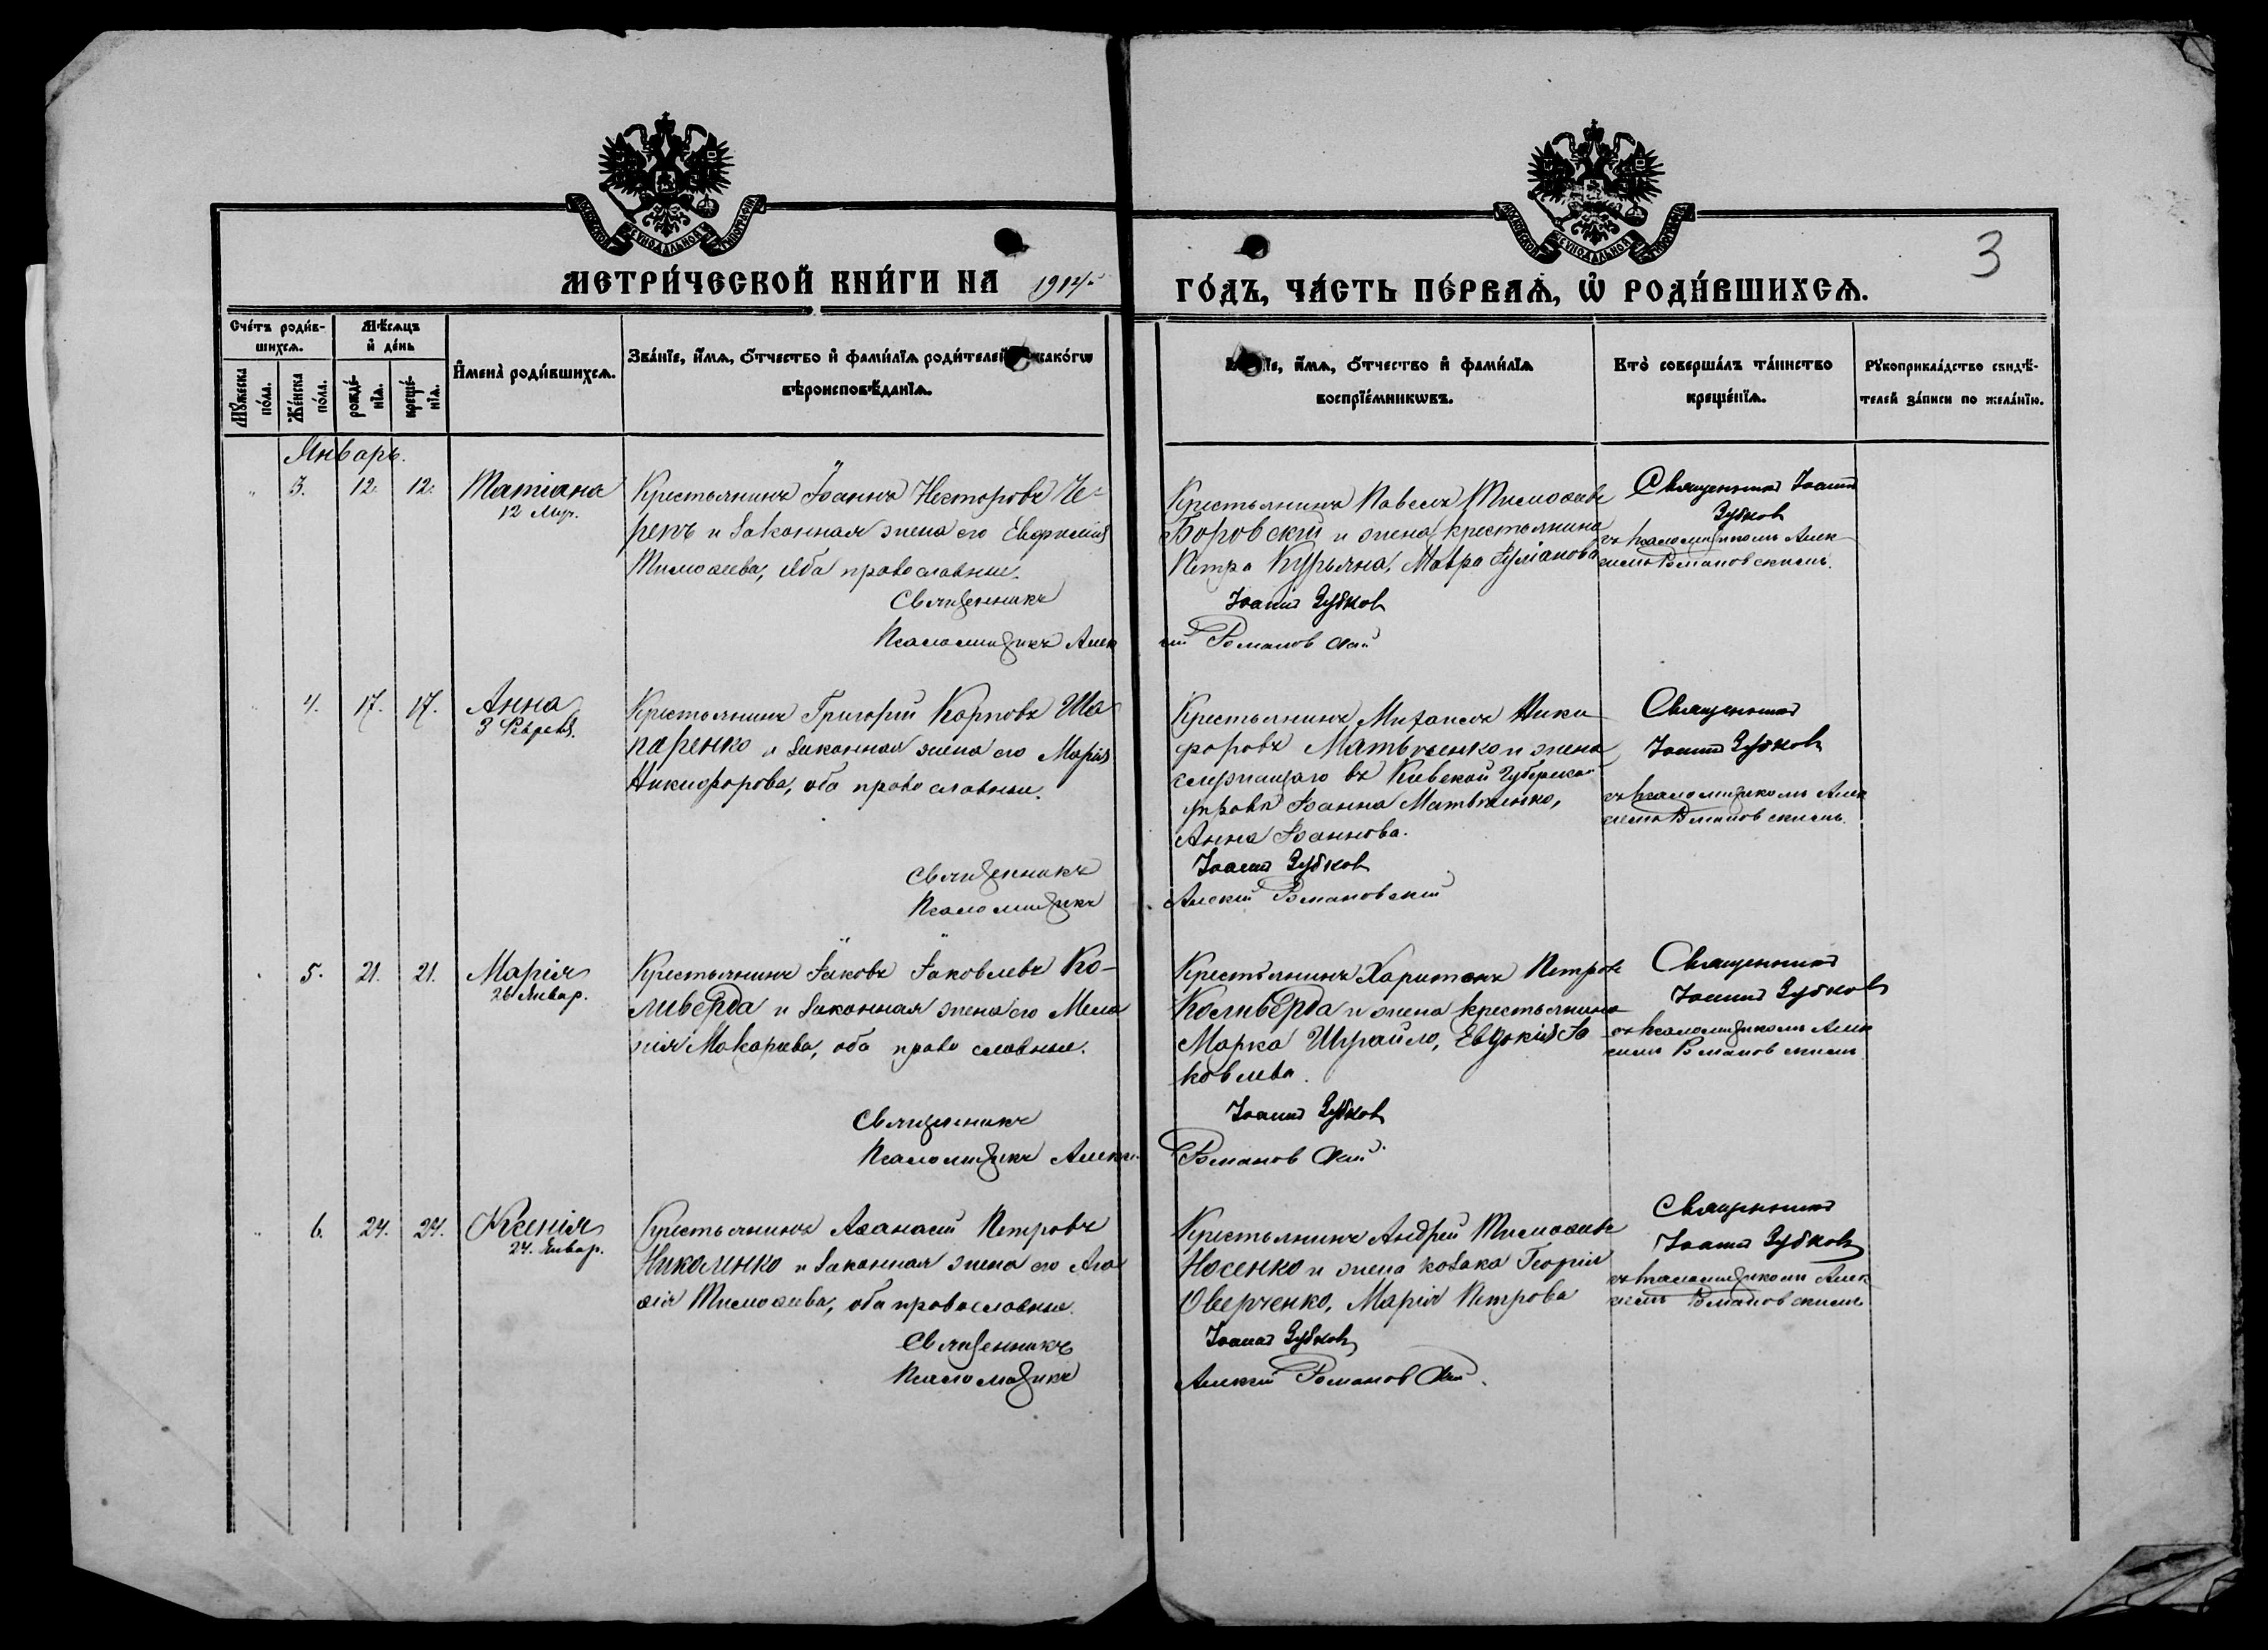 3
МЕТРИ́ЧЕСКОЙ КНИ́ГИ НА 1914.
ГО́ДЪ, ЧА́СТЬ ПЕ́РВАѦ, Ѡ҆ РОДИ́ВШИХСѦ.
Сче́тъ роди́в-
шихсѧ.
Мꙋ́жеска
по́ла.
Же́нска
по́ла.
Мѣ́сѧцъ
и҆ де́нь
рожде́-
нїѧ.
креще́-
нїѧ.
И҆мена̀ роди́вшихсѧ.
Зва́нїе, и҆́мѧ, ѻ҆́тчество и҆ фами́лїѧ роди́телей
вѣроисповѣ́данїѧ.
и҆́мѧ, ѻ҆́тчество и҆ фами́лїѧ
воспрїе́мникѡвъ.
Кто̀ соверша́лъ та́инство
креще́нїѧ.
Рꙋкоприкла́дство свидѣ́-
телей за́писи по жела́нїю.
Январь.
3. 12. 12. Татіана
12 Янр.
Крестьянинъ Іоаннъ Несторовъ Че-
репъ и законная жена его Евфимія
Тимоѳеева, оба православные.
Священникъ
Псаломщикъ Алек
Крестьянинъ Павелъ Тимоѳеевъ
Боровскій и жена крестьянина
Петра Курьяна, Мавра
Іоаннъ Зубковъ
сій Романовскій
Священникъ Іоаннъ
Зубковъ
съ псаломщикомъ Алек
сіемъ Романовскимъ.
4. 17. 17. Анна
3 Февраля.
Крестьянинъ Григорій Карповъ Ша
паренко и законная жена его Марія
Никифорова, оба православные.
Священникъ
Псаломщикъ
Крестьянинъ Михаилъ Ники
форовъ Матвѣенко и жена
служащаго въ Кіевской Губернской
управѣ Іоанна Матвѣенко,
Анна Іоаннова.
Іоаннъ Зубковъ
Алексій Романовскій
Священникъ
Іоаннъ Зубковъ
съ псаломщикомъ Алек
сіемъ Романовскимъ.
5. 21. 21. Марія
26 Январ.
Крестьянинъ Іаковъ Іаковлевъ Ко-
ливерда и законная жена его Мела
нія Макарьева, оба православные.
Священникъ
Псаломщикъ Алексій
Крестьянинъ Харитонъ Петровъ
Коливерда и жена крестьянина
Марка Шрайло, Евдокія Іа
ковлева.
Іоаннъ Зубковъ
Романовскій
Священникъ
Іоаннъ Зубковъ
съ псаломщикомъ Алек
сіемъ Романовскимъ
6. 24. 24. Ксенія
24. Январ.
Крестьянинъ Аѳанасій Петровъ
Николенко и законная жена его Ага
ѳія Тимоѳеева, оба православные.
Священникъ
Псаломщикъ
Крестьянинъ Андрей Тимоѳеевъ
Носенко и жена козака Георгія
Оверченко, Марія Петрова
Іоаннъ Зубковъ
Алексій Романовскій.
Священникъ
Іоаннъ Зубковъ
съ псаломщикомъ Алек
сіемъ Романовскимъ